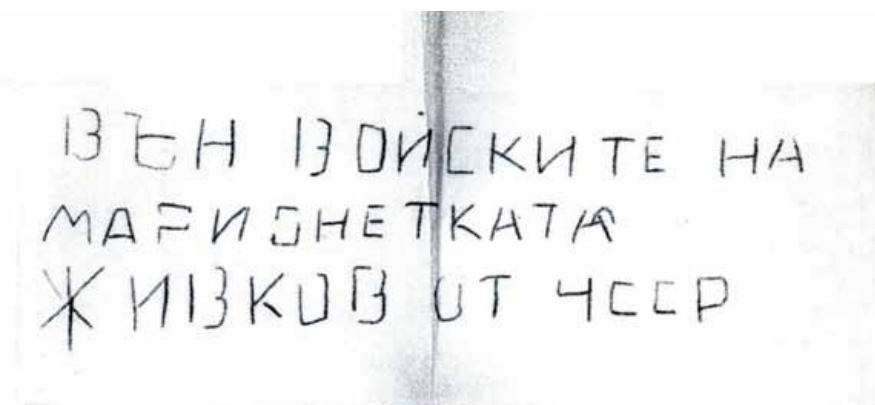 ВЪН ВОЙСКИТЕ НА
МАРИОНЕТКАТА
ЖИВКОВ ОТ ЧССР